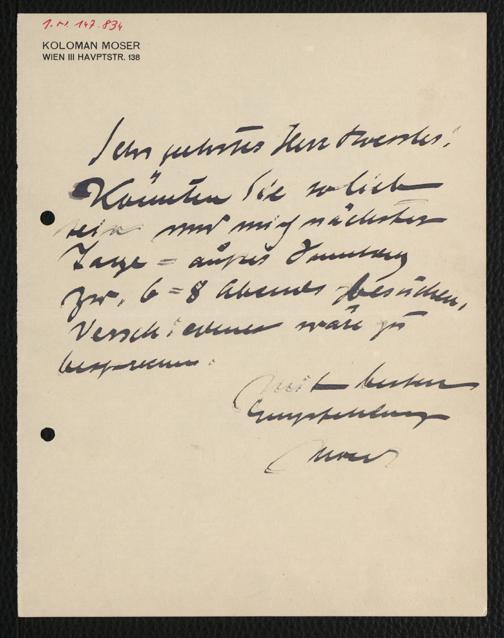 I.N. 147.834
KOLOMAN MOSER
WIEN III HAVPTSTR. 138
Sehr geehrter Herr Roessler!
Könnten Sie so lieb
sein und mich nächster
Tage = außer Sonntag
zw. 6 = 8 Abends besuchen,
Verschiedenes wäre zu
besprechen.
Mit besten
Empfehlungen
Moser